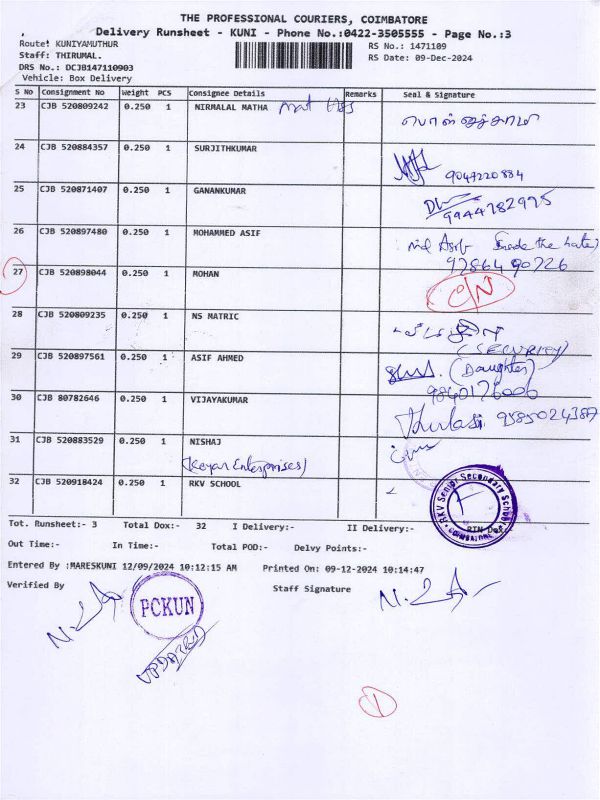 THE PROFESSIONAL COURIERS, COIMBATORE
Delivery Runsheet - KUNI - Phone No.:0422-3505555 - Page No.:3
Route: KUNIYAMUTHUR RS No.: 1471109
Staff: THIRUMAL. RS Date: 09-Dec-2024
DRS No.: DCJB147110903
Vehicle: Box Delivery
S No Consignment No Weight PCS Consignee Details Remarks Seal & Signature
23 CJB 520809242 0.250 1 NIRMALAL MATHA
24 CJB 520884357 0.250 1 SURJITHKUMAR
9047220884
25 CJB 520871407 0.250 1 GANANKUMAR
9944782975
26 CJB 520897480 0.250 1 MOHAMMED ASIF
9786490726
27 CJB 520898044 0.250 1 MOHAN
C/N
28 CJB 520809235 0.250 1 NS MATRIC
(SECURITY)
29 CJB 520897561 0.250 1 ASIF AHMED
(Daughter)
30 CJB 80782646 0.250 1 VIJAYAKUMAR
Thulasi
31 CJB 520883529 0.250 1 NISHAJ
(Keyar Enterprises)
32 CJB 520918424 0.250 1 RKV SCHOOL
RKV Senior Secondary School
COIMBATORE
Tot. Runsheet:- 3 Total Dox:- 32 I Delivery:- II Delivery:-
Out Time:- In Time:- Total POD:- Delvy Points:-
Entered By :MARESKUNI 12/09/2024 10:12:15 AM Printed On: 09-12-2024 10:14:47
Verified By Staff Signature
PCKUN
UPDATED
1